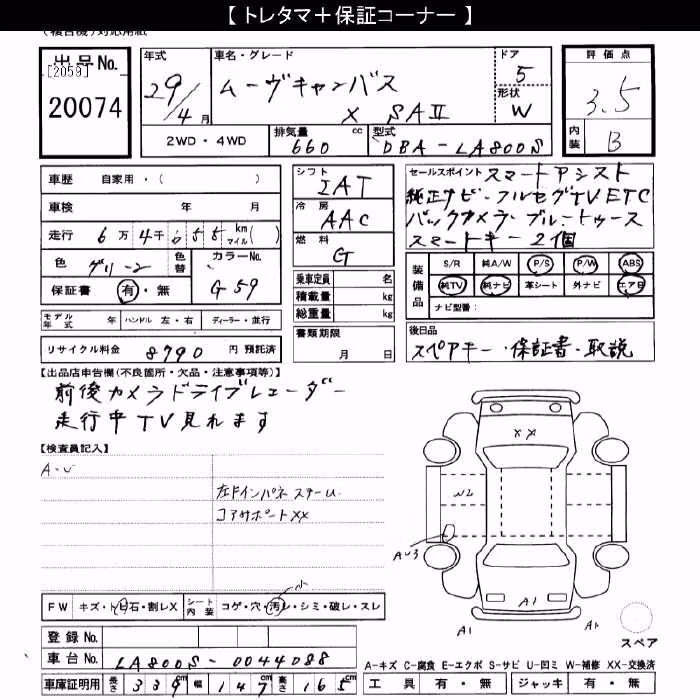 【 トレタマ＋保証コーナー 】
出品No. [2059] 20074
年式 29/4月
車名・グレード ムーヴキャンバス X SAⅡ
ドア 5
形状 W
評価点 3.5
内装 B
2WD・4WD
排気量 660 cc
型式 DBA-LA800S
車歴 自家用・( )
車検 年 月
走行 6万4千055 km マイル( )
色 グリーン 色替
カラーNo. G59
保証書 有・無
モデル年式 年 ハンドル 左・右 ディーラー・並行
リサイクル料金 8790 円 預託済
シフト IAT
冷房 AAC
燃料 G
乗車定員 名
積載量 kg
総重量 kg
書類期限 月 日
セールスポイント スマートアシスト
純正ナビ・フルセグTV ETC
バックカメラ・ブルートゥース
スマートキー2個
装備品 S/R 純A/W P/S P/W ABS
純TV 純ナビ 革シート 外ナビ エアB
ナビ型番:
後日品
スペアキー・保証書・取説
【出品店申告欄(不良箇所・欠品・注意事項等)】
前後カメラドライブレコーダー
走行中TV見れます
【検査員記入】
A・U
左Fインパネステー U
コアサポートXX
FW キズ・トビ石・割レX シート内装 コゲ・穴・汚レ・シミ・破レ・スレ
小
登録No.
車台No. LA800S-0044088
車庫証明用 長さ 339cm 幅 147cm 高さ 165cm
XX
W2
AU3
A1
A1
A1
スペア
A-キズ C-腐食 E-エクボ S-サビ U-凹ミ W-補修 X-要交換 XX-交換済
工具 有・無 ジャッキ 有・無